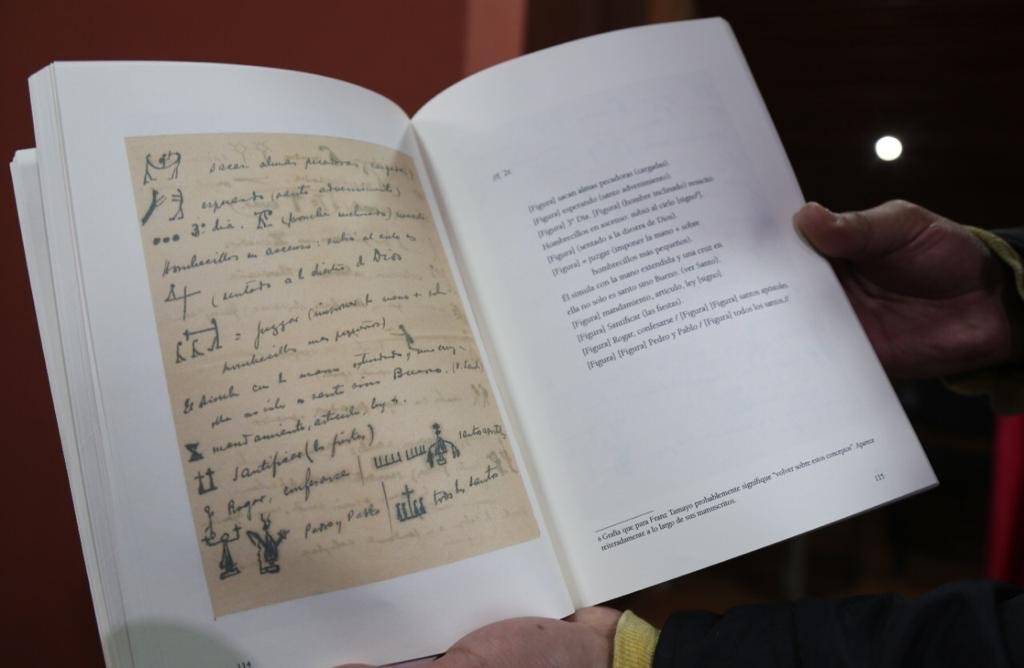 sacan almas pecadoras (cargadas)
esperando (santo advenimiento)
3º dia. (hombre inclinado) muerto
Hombrecillos en ascenso: subió al cielo
(sentado a la diestra de Dios
= juzgar (imponer la mano + sobre
hombrecillos más pequeños)
El simula con la mano extendida y una cruz en
ella no solo es santo sino Bueno. (V. Santo)
mandamiento, artículo, ley
Santificar (las fiestas)
Rogar, confesarse
santos apóst.
Pedro y Pablo
todos los santos
114
//f. 2r.
[Figura] sacan almas pecadoras (cargadas).
[Figura] esperando (santo advenimiento).
[Figura] 3º Día. [Figura] (hombre inclinado) muerto.
Hombrecillos en ascenso: subió al cielo [signo⁶].
[Figura] (sentado a la diestra de Dios).
[Figura] = juzgar (imponer la mano + sobre
hombrecillos más pequeños).
Él simula con la mano extendida y una cruz en
ella no solo es santo sino Bueno. (ver Santo).
[Figura] mandamiento, artículo, ley [signo].
[Figura] Santificar (las fiestas).
[Figura] Rogar, confesarse / [Figura] [Figura] santos apóstoles.
[Figura] [Figura] Pedro y Pablo / [Figura] todos los santos.//
6 Grafía que para Franz Tamayo probablemente signifique "volver sobre estos conceptos". Aparece
reiteradamente a lo largo de sus manuscritos.
115